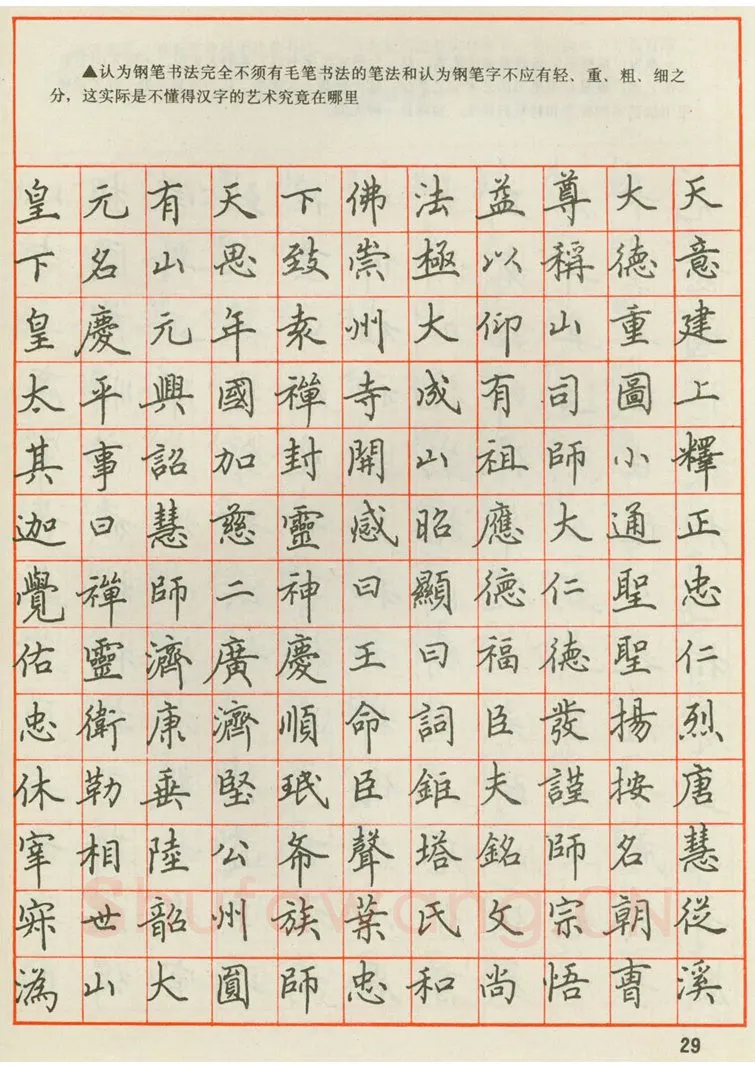 ▲认为钢笔书法完全不须有毛笔书法的笔法和认为钢笔字不应有轻、重、粗、细之
分，这实际是不懂得汉字的艺术究竟在哪里
皇元有天下佛法益尊大天
下名山思致崇極以稱德意
皇慶元年袁州大仰山重建
太平興國禪寺成有司圖上
其事詔加封開山祖師小釋
迦曰慧慈靈感昭應大通正
覺禪師二神曰顯德仁聖忠
佑靈濟廣慶王曰福德聖仁
忠衛康濟順命詞臣發揚烈
休勒垂堅珉臣鉅夫謹按唐
宰相陸公希聲塔銘師名慧
寂世韶州族葉氏文宗朝從
潙山大圓師忠和尚悟曹溪
Shufawang.CN
29